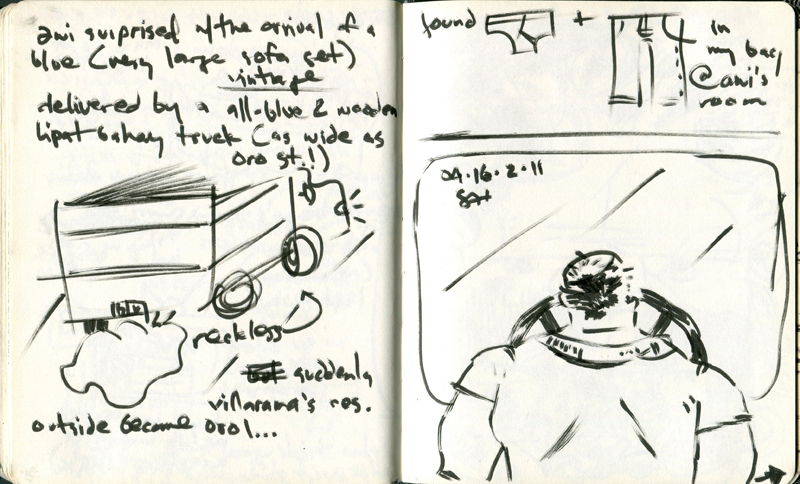 ani surprised w/the arrival of a
blue (very large sofa set)
vintage
delivered by a all-blue & wooden
lipat bahay truck (as wide as
oro st.!)
reckless
suddenly
villarama's res.
outside became oro!...
found
+
in
my bag
@ani's
room
04.16.2.11
SAt